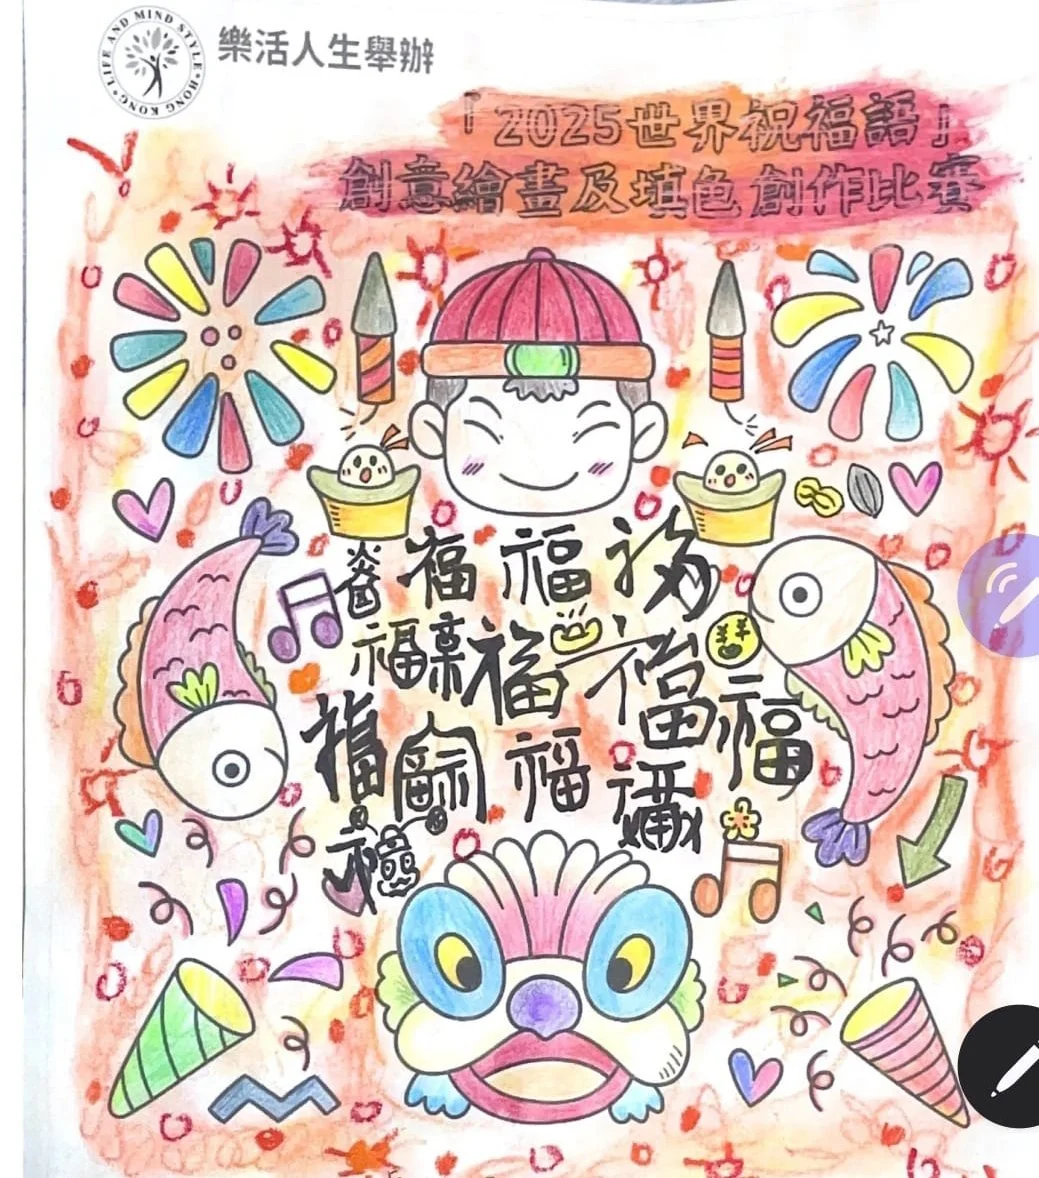 LIFE AND MIND STYLE•HONG KONG•
樂活人生舉辦
「2025世界祝福語」
創意繪畫及填色創作比賽
福福福
福福福
福福福